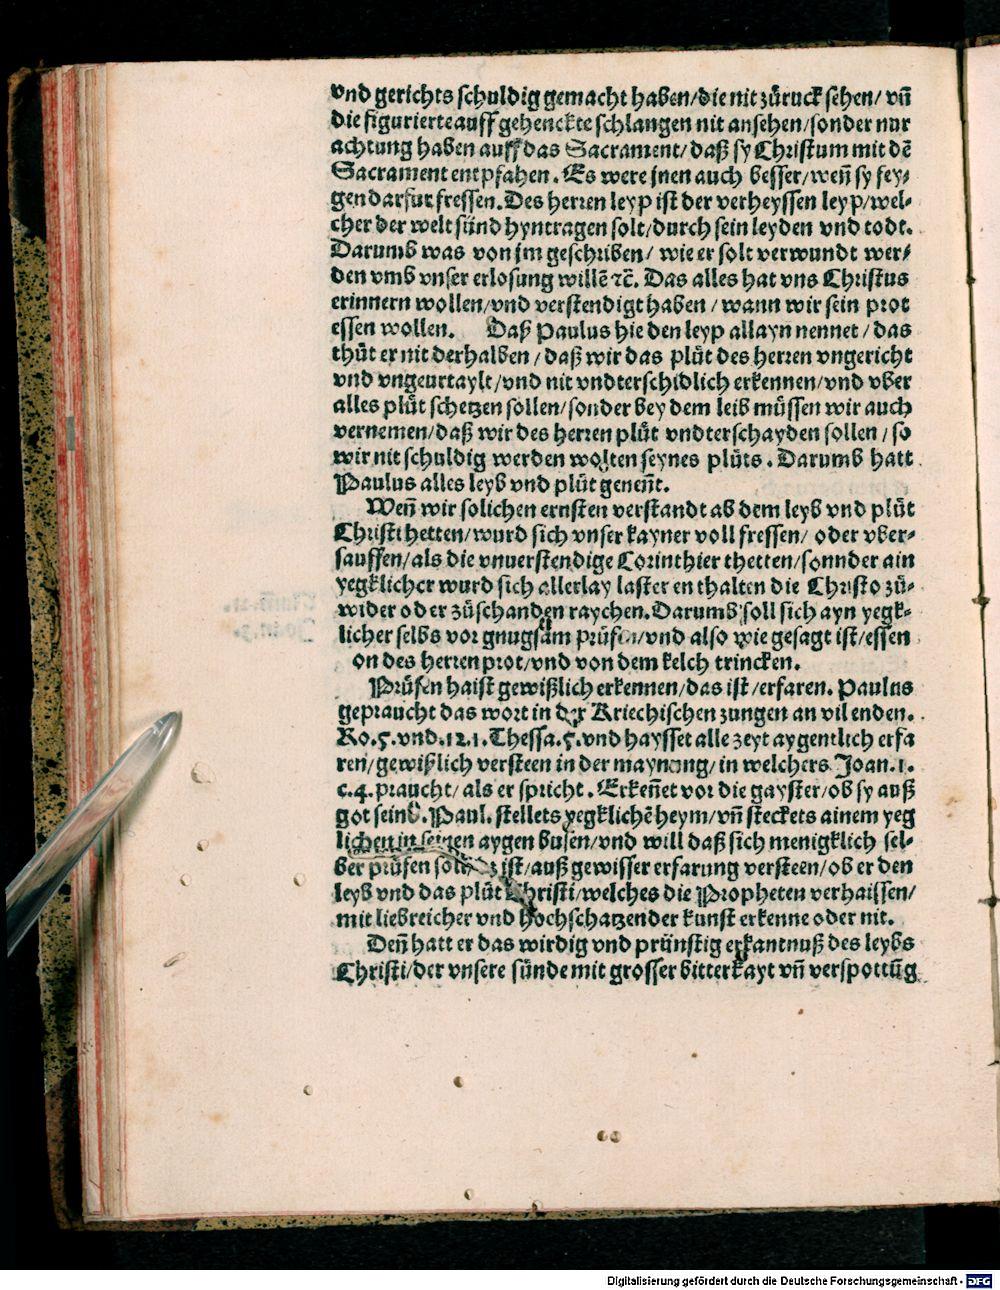 vnd gerichts schuldig gemacht haben/die nit zůruck sehen/ vñ
die figurierte auff gehenckte schlangen nit ansehen/sonder nur
achtung haben auff das Sacrament/ daß sy Christum mit dē
Sacrament entpfahen. Es were jnen auch besser/weñ sy fey-
gen darfur fressen. Des herren leyp ist der verheyssen leyp/wel-
cher der welt sünd hyntragen solt/durch sein leyden vnd todt.
Darumb was von jm geschriben/ wie er solt verwundt wer-
den vmb vnser erlosung willē ꝛc̄. Das alles hat vns Christus
erinnern wollen/vnd verstendigt haben / wann wir sein prot
essen wollen. Daß Paulus hie den leyp allayn nennet / das
thůt er nit derhalben / daß wir das plůt des herren vngericht
vnd vngeurtaylt/vnd nit vndterschidlich erkennen/vnd vber
alles plůt schetzen sollen/sonder bey dem leib müssen wir auch
vernemen/daß wir des herren plůt vndterschayden sollen / so
wir nit schuldig werden wolten seynes plůts. Darumb hatt
Paulus alles leyb vnd plůt geneñt.
Weñ wir solichen ernsten verstandt ab dem leyb vnd plůt
Christi hetten/wurd sich vnser kayner voll fressen/ oder vber-
sauffen/als die vnuerstendige Corinthier thetten/sonnder ain
yegklicher wurd sich allerlay laster enthalten die Christo zů-
wider oder zůschanden raychen. Darumb soll sich ayn yegk-
licher selbs vor gnugsam prüfen/vnd also wie gesagt ist/essen
on des herren prot/vnd von dem kelch trincken.
Prüfen haist gewißlich erkennen/das ist/erfaren. Paulus
gepraucht das wort in der Kriechischen zungen an vil enden.
Ro.5.vnd.12.1.Thessa.5.vnd haysset alle zeyt aygentlich erfa
ren/gewißlich versteen in der maynung/in welchers Joan.1.
c.4.praucht/als er spricht. Erkeñet vor die gayster/ob sy auß
got seind. Paul. stellets yegklichē heym/vñ steckets ainem yeg
lichen in seinen aygen busen/vnd will daß sich menigklich sel-
ber prüfen soll ist/auß gewisser erfarung versteen/ob er den
leyb vnd das plůt Christi/welches die Propheten verhaissen/
mit liebreicher vnd hochschatzender kunst erkenne oder nit.
Deñ hatt er das wirdig vnd prünstig erkantnuß des leybs
Christi/der vnsere sünde mit grosser bitterkayt vñ verspottūg
Digitalisierung gefördert durch die Deutsche Forschungsgemeinschaft - DFG